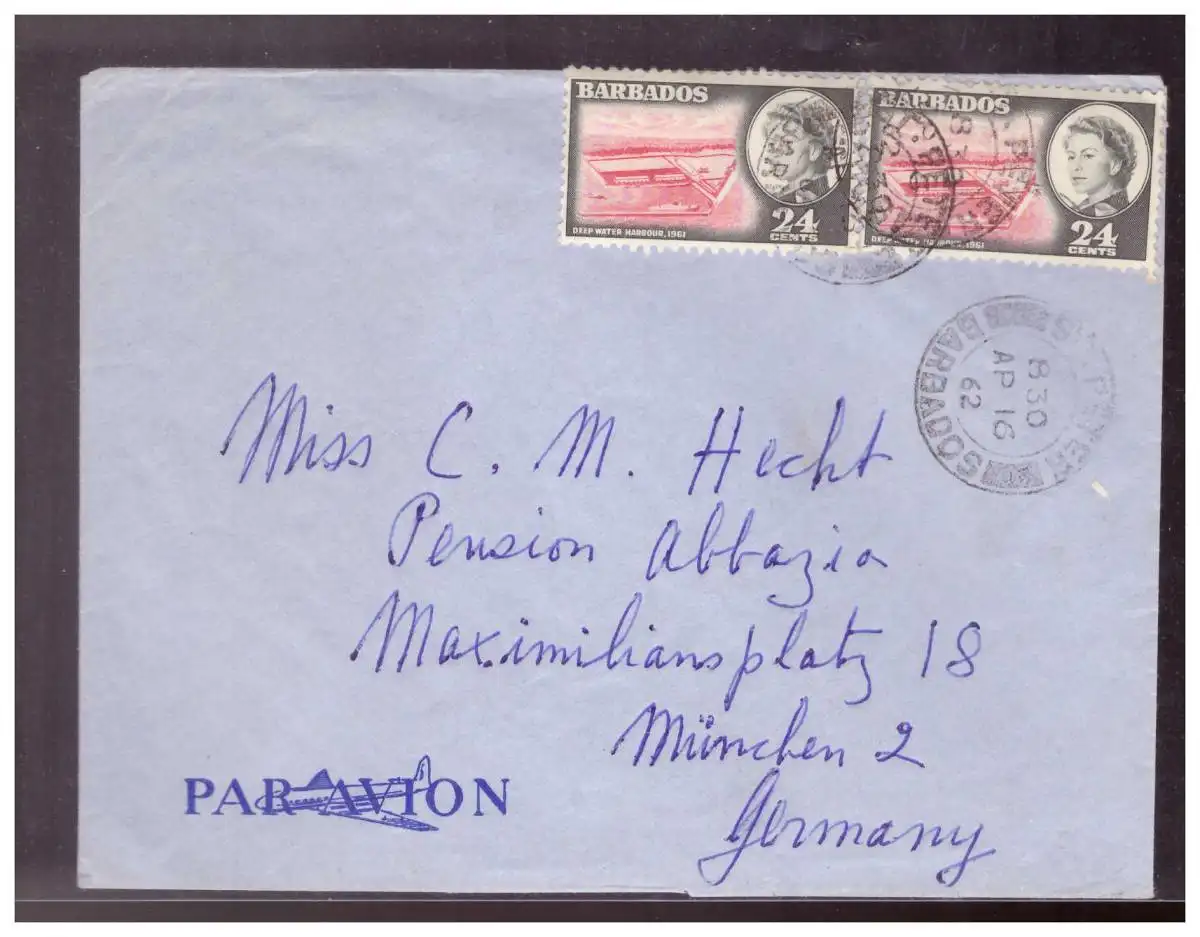 BARBADOS
DEEP WATER HARBOUR, 1961
24
CENTS
BARBADOS
DEEP WATER HARBOUR, 1961
24
CENTS
BARBADOS
8 30
AP 16
62
Miss C. M. Hecht
Pension Abbazia
Maximiliansplatz 18
München 2
Germany
PAR AVION